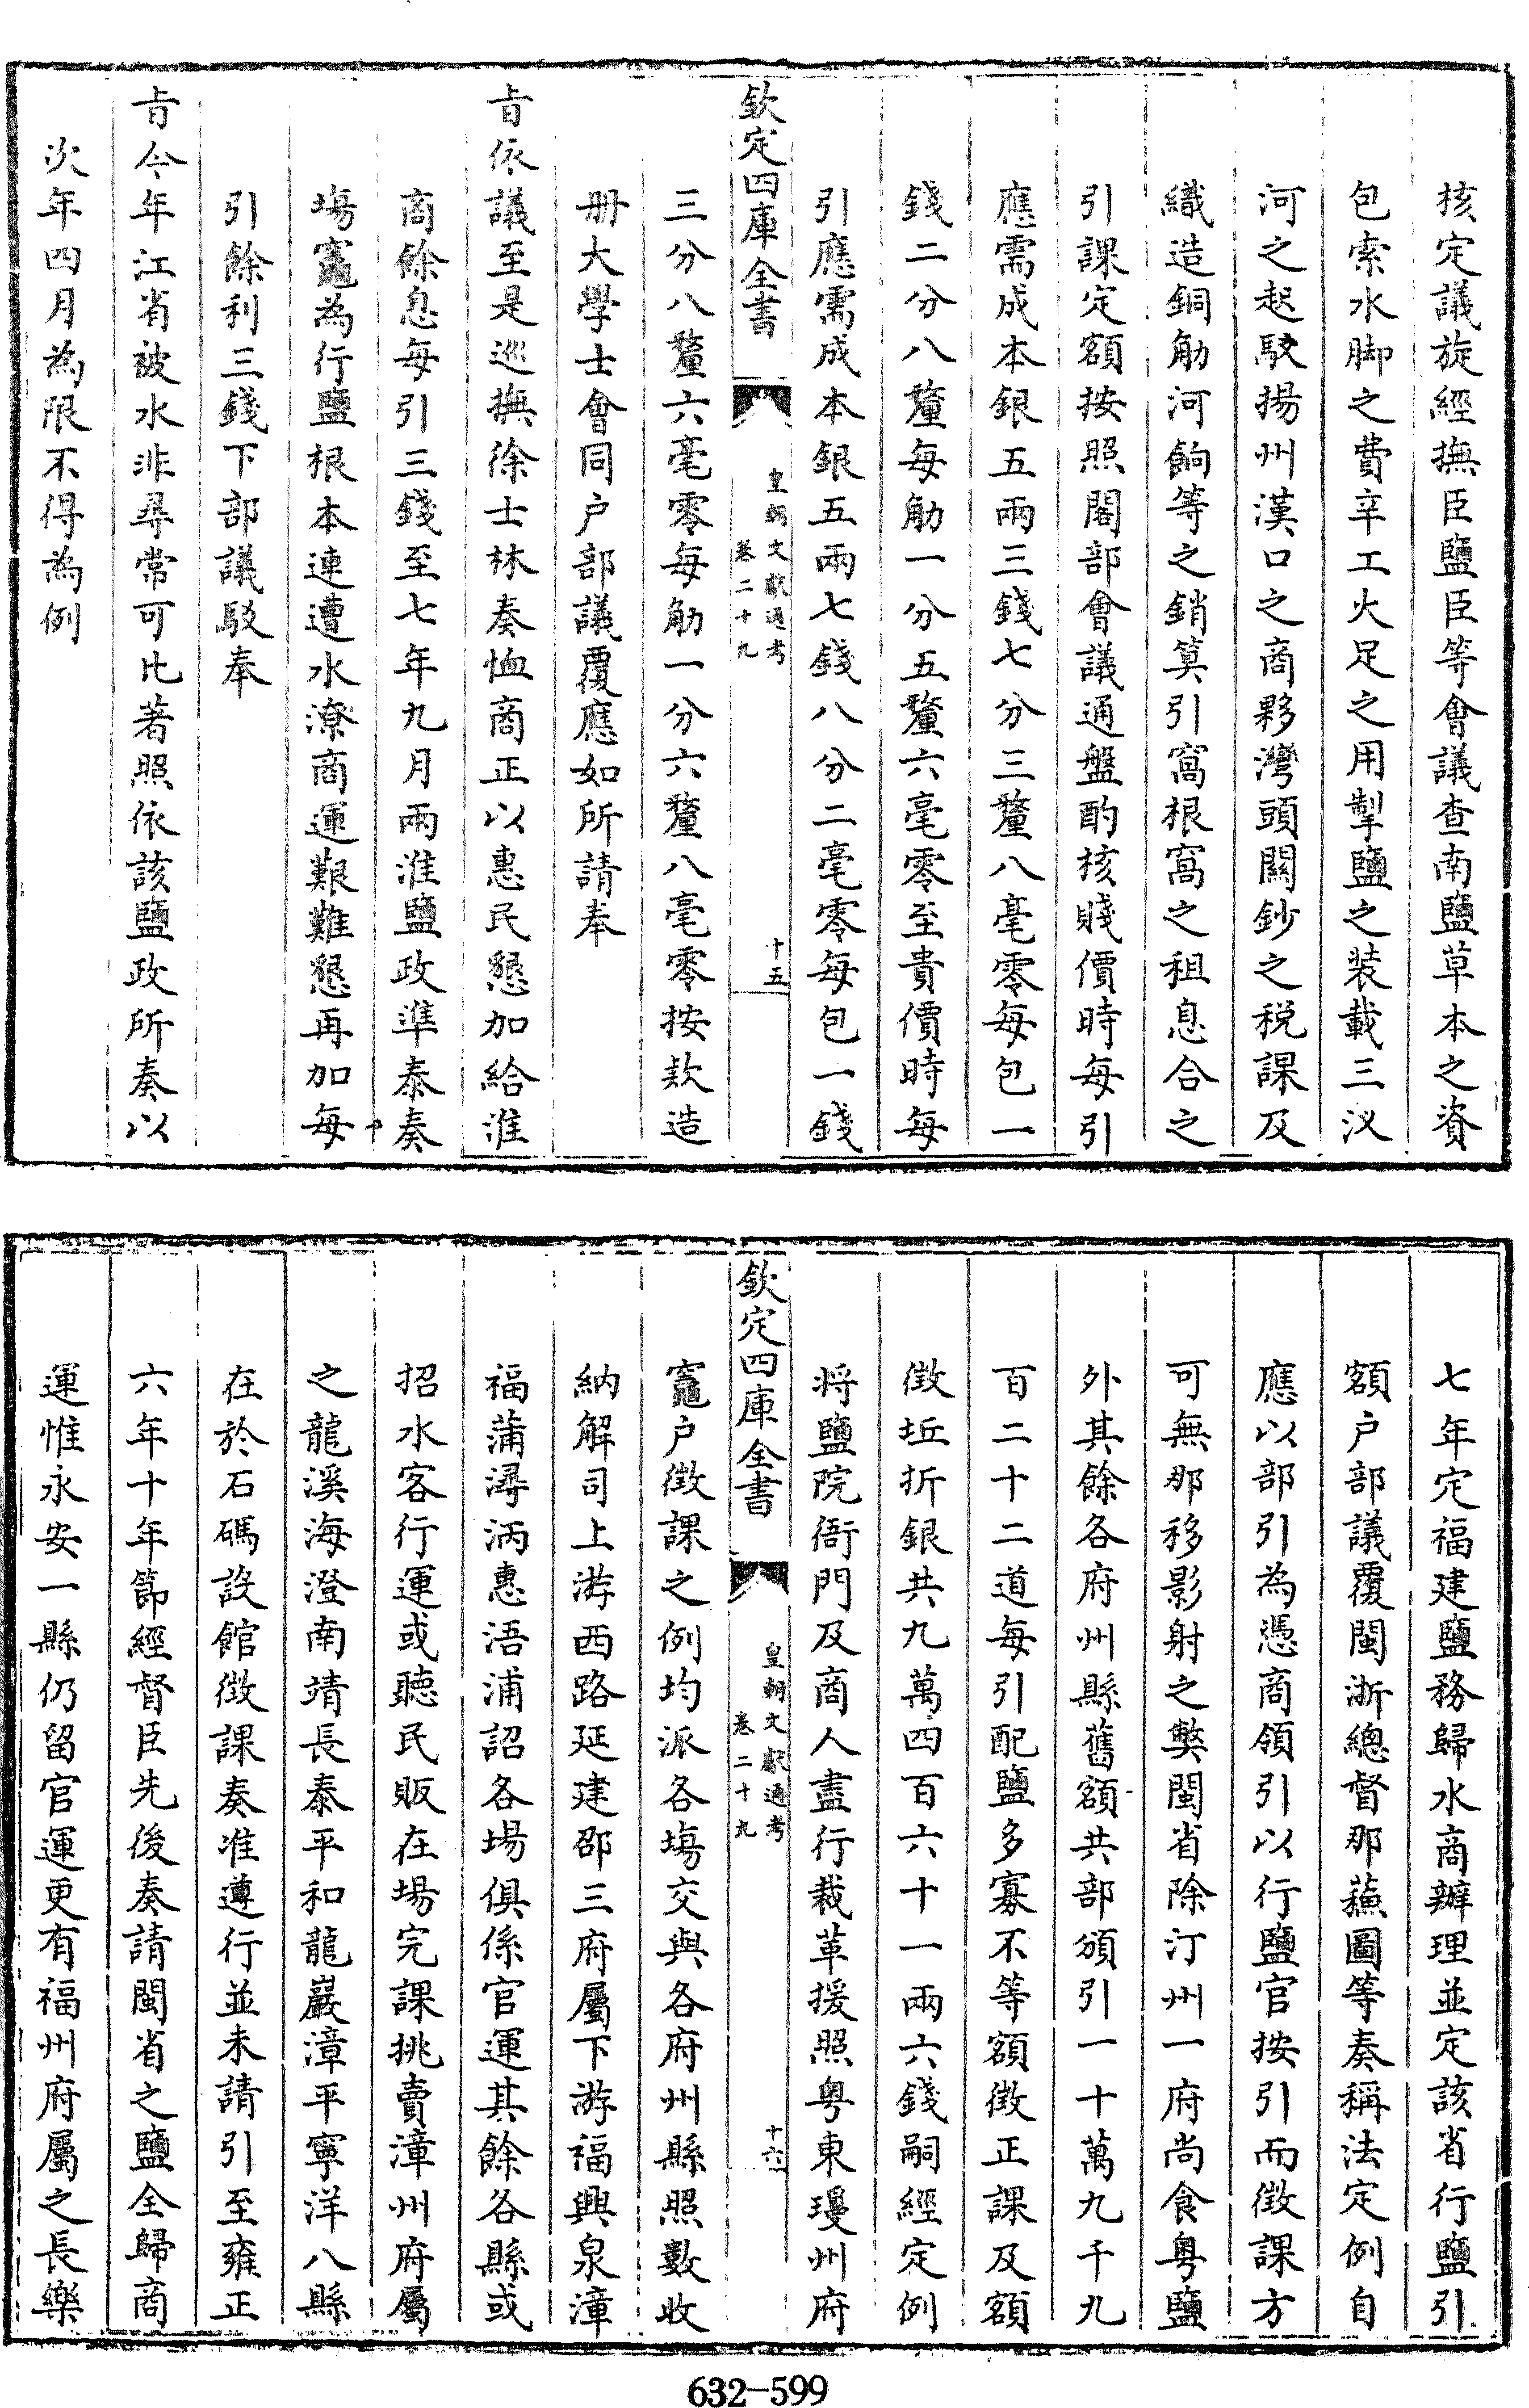 核定議旋經撫臣鹽臣等會議查南鹽草本之資
包索水脚之費辛工火足之用掣鹽之装載三汊
河之起駁揚州漢口之商夥灣頭關鈔之税課及
織造銅觔河餉等之銷算引窩根窩之租息合之
引課定額按照閣部會議通盤酌核賤價時每引
應需成本銀五兩三錢七分三釐八毫零每包一
錢二分八釐每觔一分五釐六毫零至貴價時每
引應需成本銀五兩七錢八分二毫零每包一錢
欽定四庫全書
皇朝文獻通考
卷二十九
十五
三分八釐六毫零每觔一分六釐八毫零按欵造
册大學士會同户部議覆應如所請奉
旨依議至是巡撫徐士林奏恤商正以惠民懇加給淮
商餘息每引三錢至七年九月兩淮鹽政準泰奏
場竈為行鹽根本連遭水潦商運艱難懇再加每
引餘利三錢下部議駁奉
旨今年江省被水非尋常可比著照依該鹽政所奏以
次年四月為限不得為例
七年定福建鹽務歸水商辦理並定該省行鹽引
額户部議覆閩浙總督那蘓圖等奏稱法定例自
應以部引為憑商領引以行鹽官按引而徴課方
可無那移影射之弊閩省除汀州一府尚食粤鹽
外其餘各府州縣舊額共部頒引一十萬九千九
百二十二道每引配鹽多寡不等額徴正課及額
徴坵折銀共九萬四百六十一兩六錢嗣經定例
将鹽院衙門及商人盡行裁革援照粤東瓊州府
欽定四庫全書
皇朝文獻通考
卷二十九
十六
竈户徴課之例均派各場交與各府州縣照數收
納解司上游西路延建邵三府屬下游福興泉漳
福蒲潯浉惠浯浦詔各場俱係官運其餘各縣或
招水客行運或聽民販在場完課挑賣漳州府屬
之龍溪海澄南靖長泰平和龍巖漳平寧洋八縣
在於石碼設館徴課奏准遵行並未請引至雍正
六年十年節經督臣先後奏請閩省之鹽全歸商
運惟永安一縣仍留官運更有福州府屬之長樂
632-599